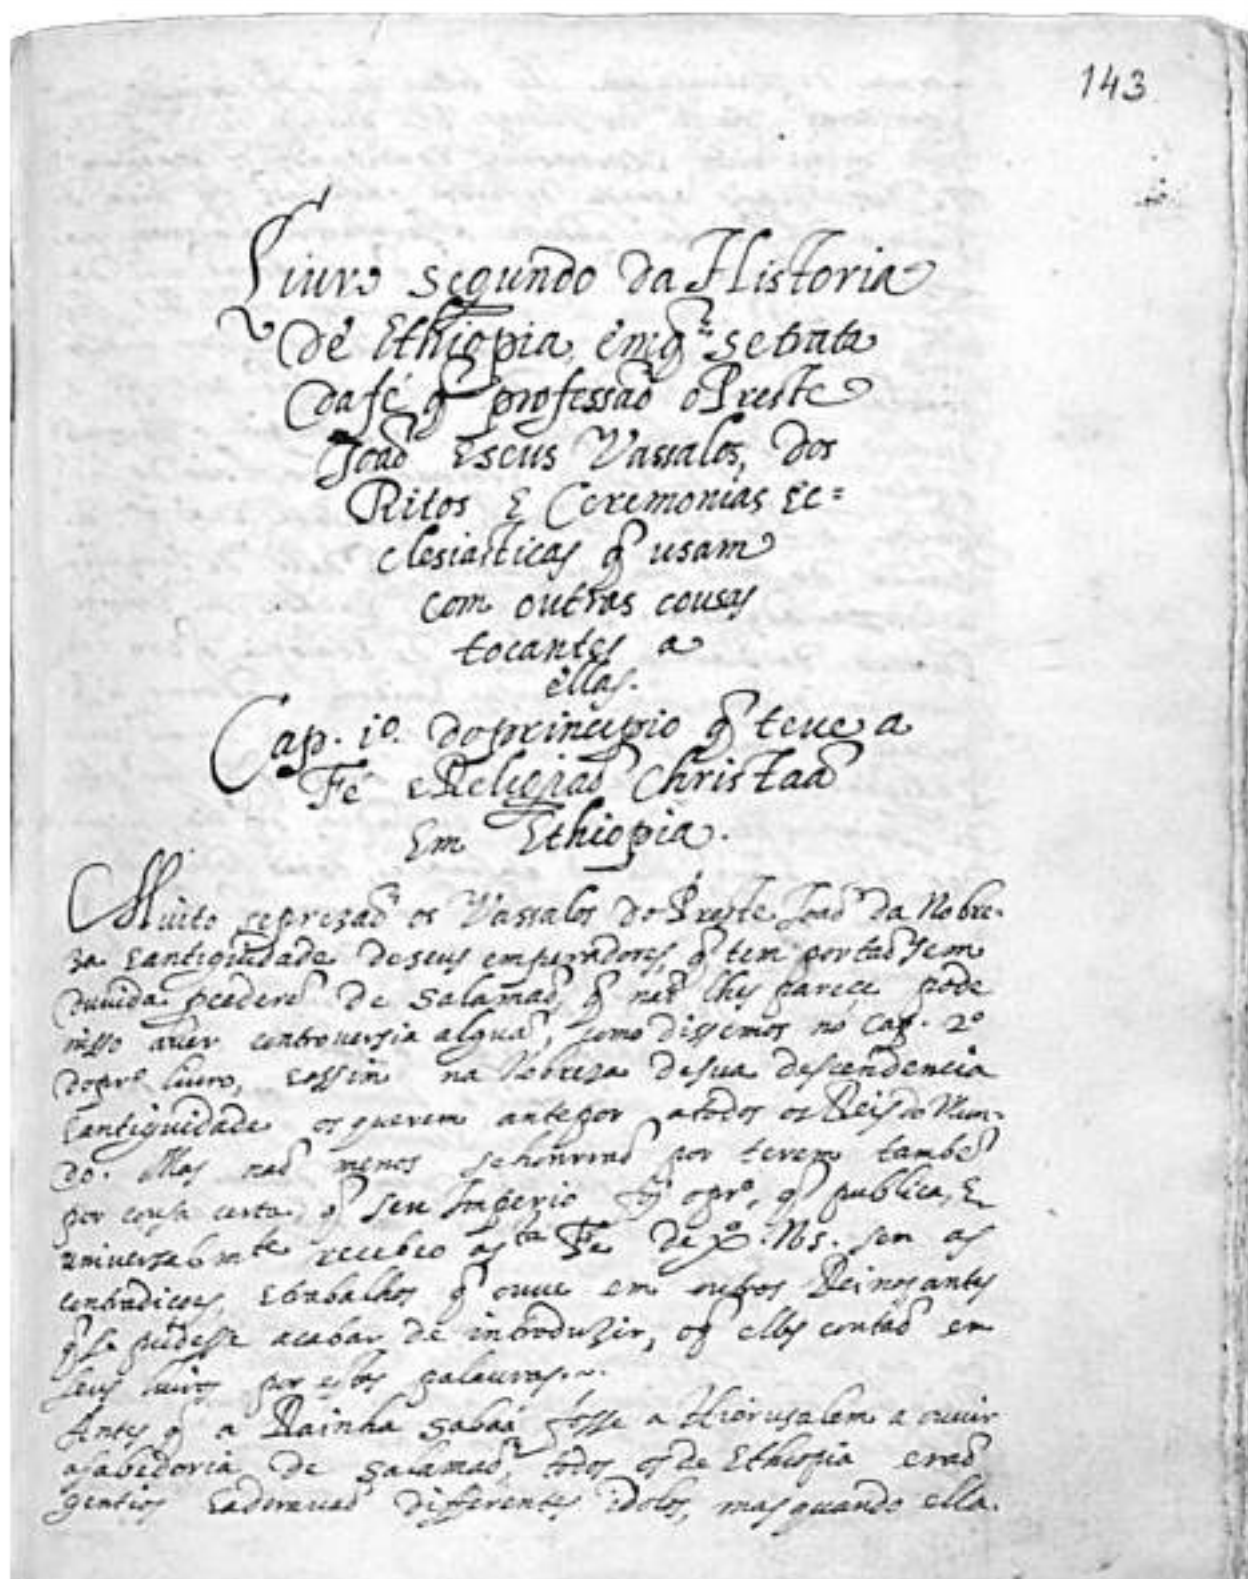 143
Liuro segundo da Historia
de Ethiopia, em q̃ se trata
da fé q̃ professaõ o Preste
Joaõ e seus Vassalos, dos
Ritos e Ceremonias Ec=
clesiasticas q̃ usam
com outras cousas
tocantes a
ellas.
Cap. 1º. do principio q̃ teve a
Fé e Religiaõ Christaã
Em Ethiopia.
Muito se prezaõ os Vassalos do Preste Joaõ da Nobre-
za e antiguidade de seus emperadores, q̃ tem por taõ sem
duvida de Salamaõ, q̃ naõ lhes parece pode
nisso aver controversia algũa, como dissemos no Cap. 2º
do prº liuro, e assim na Nobreza de sua descendencia
e antiguidade os querem antepor a todos os Reis do Mun-
do. Mas naõ menos se honrraõ por terem tambẽ
por cousa certa, q̃ seu Imperio foy o prº, q̃ publica, e
universalmte recebeo a sta Fé de Xº. N.S. sem as
contradicoes, e trabalhos q̃ ouve em outros Reinos antes
q̃ se pudesse acabar de introduzir, o q̃ elles contaõ em
seus liuros por estas palauras.~.
Antes q̃ a Rainha Sabaá fosse a Hierusalem a ouvir
a sabedoria de Salamaõ, todos os de Ethiopia eraõ
gentios e adoravaõ differentes idolos, mas quando ella.